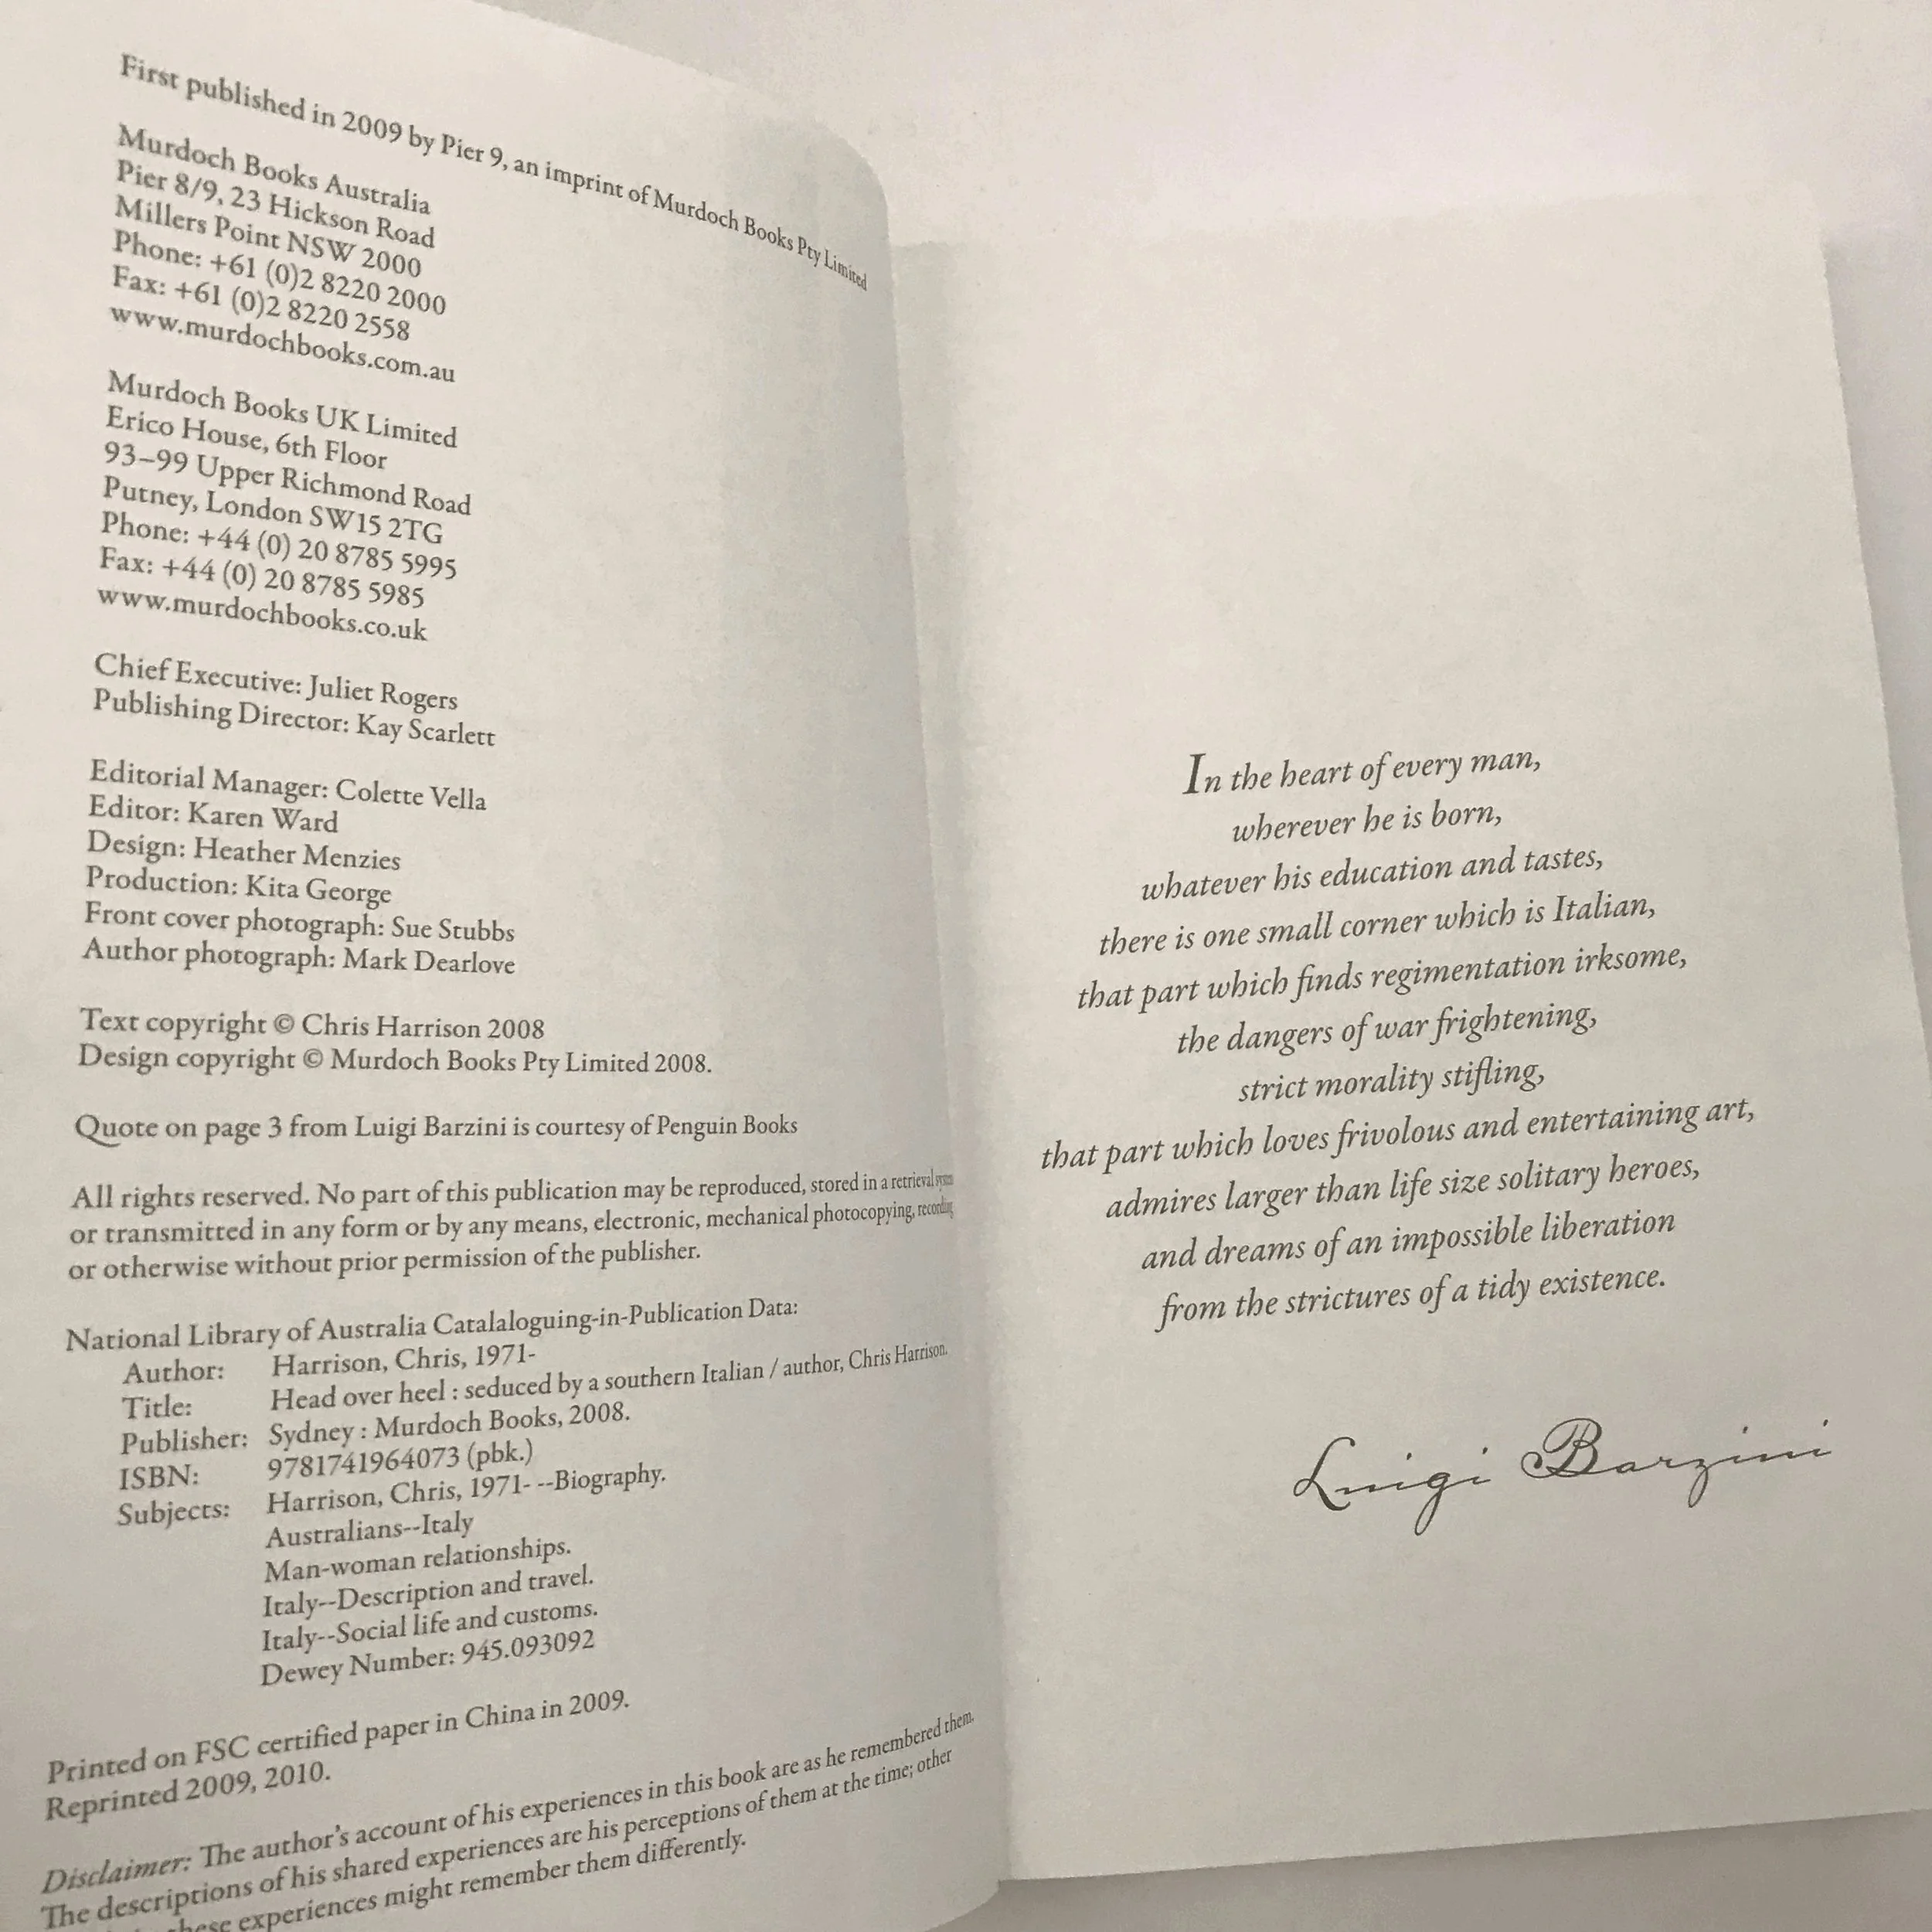 First published in 2009 by Pier 9, an imprint of Murdoch Books Pty Limited
Murdoch Books Australia
Pier 8/9, 23 Hickson Road
Millers Point NSW 2000
Phone: +61 (0)2 8220 2000
Fax: +61 (0)2 8220 2558
www.murdochbooks.com.au
Murdoch Books UK Limited
Erico House, 6th Floor
93–99 Upper Richmond Road
Putney, London SW15 2TG
Phone: +44 (0) 20 8785 5995
Fax: +44 (0) 20 8785 5985
www.murdochbooks.co.uk
Chief Executive: Juliet Rogers
Publishing Director: Kay Scarlett
Editorial Manager: Colette Vella
Editor: Karen Ward
Design: Heather Menzies
Production: Kita George
Front cover photograph: Sue Stubbs
Author photograph: Mark Dearlove
Text copyright © Chris Harrison 2008
Design copyright © Murdoch Books Pty Limited 2008.
Quote on page 3 from Luigi Barzini is courtesy of Penguin Books
All rights reserved. No part of this publication may be reproduced, stored in a retrieval system
or transmitted in any form or by any means, electronic, mechanical photocopying, recording
or otherwise without prior permission of the publisher.
National Library of Australia Catalaloguing-in-Publication Data:
Author: Harrison, Chris, 1971-
Title: Head over heel : seduced by a southern Italian / author, Chris Harrison.
Publisher: Sydney : Murdoch Books, 2008.
ISBN: 9781741964073 (pbk.)
Subjects: Harrison, Chris, 1971- --Biography.
Australians--Italy
Man-woman relationships.
Italy--Description and travel.
Italy--Social life and customs.
Dewey Number: 945.093092
Printed on FSC certified paper in China in 2009.
Reprinted 2009, 2010.
Disclaimer: The author's account of his experiences in this book are as he remembered them.
The descriptions of his shared experiences are his perceptions of them at the time; other
these experiences might remember them differently.
In the heart of every man,
wherever he is born,
whatever his education and tastes,
there is one small corner which is Italian,
that part which finds regimentation irksome,
the dangers of war frightening,
strict morality stifling,
that part which loves frivolous and entertaining art,
admires larger than life size solitary heroes,
and dreams of an impossible liberation
from the strictures of a tidy existence.
Luigi Barzini